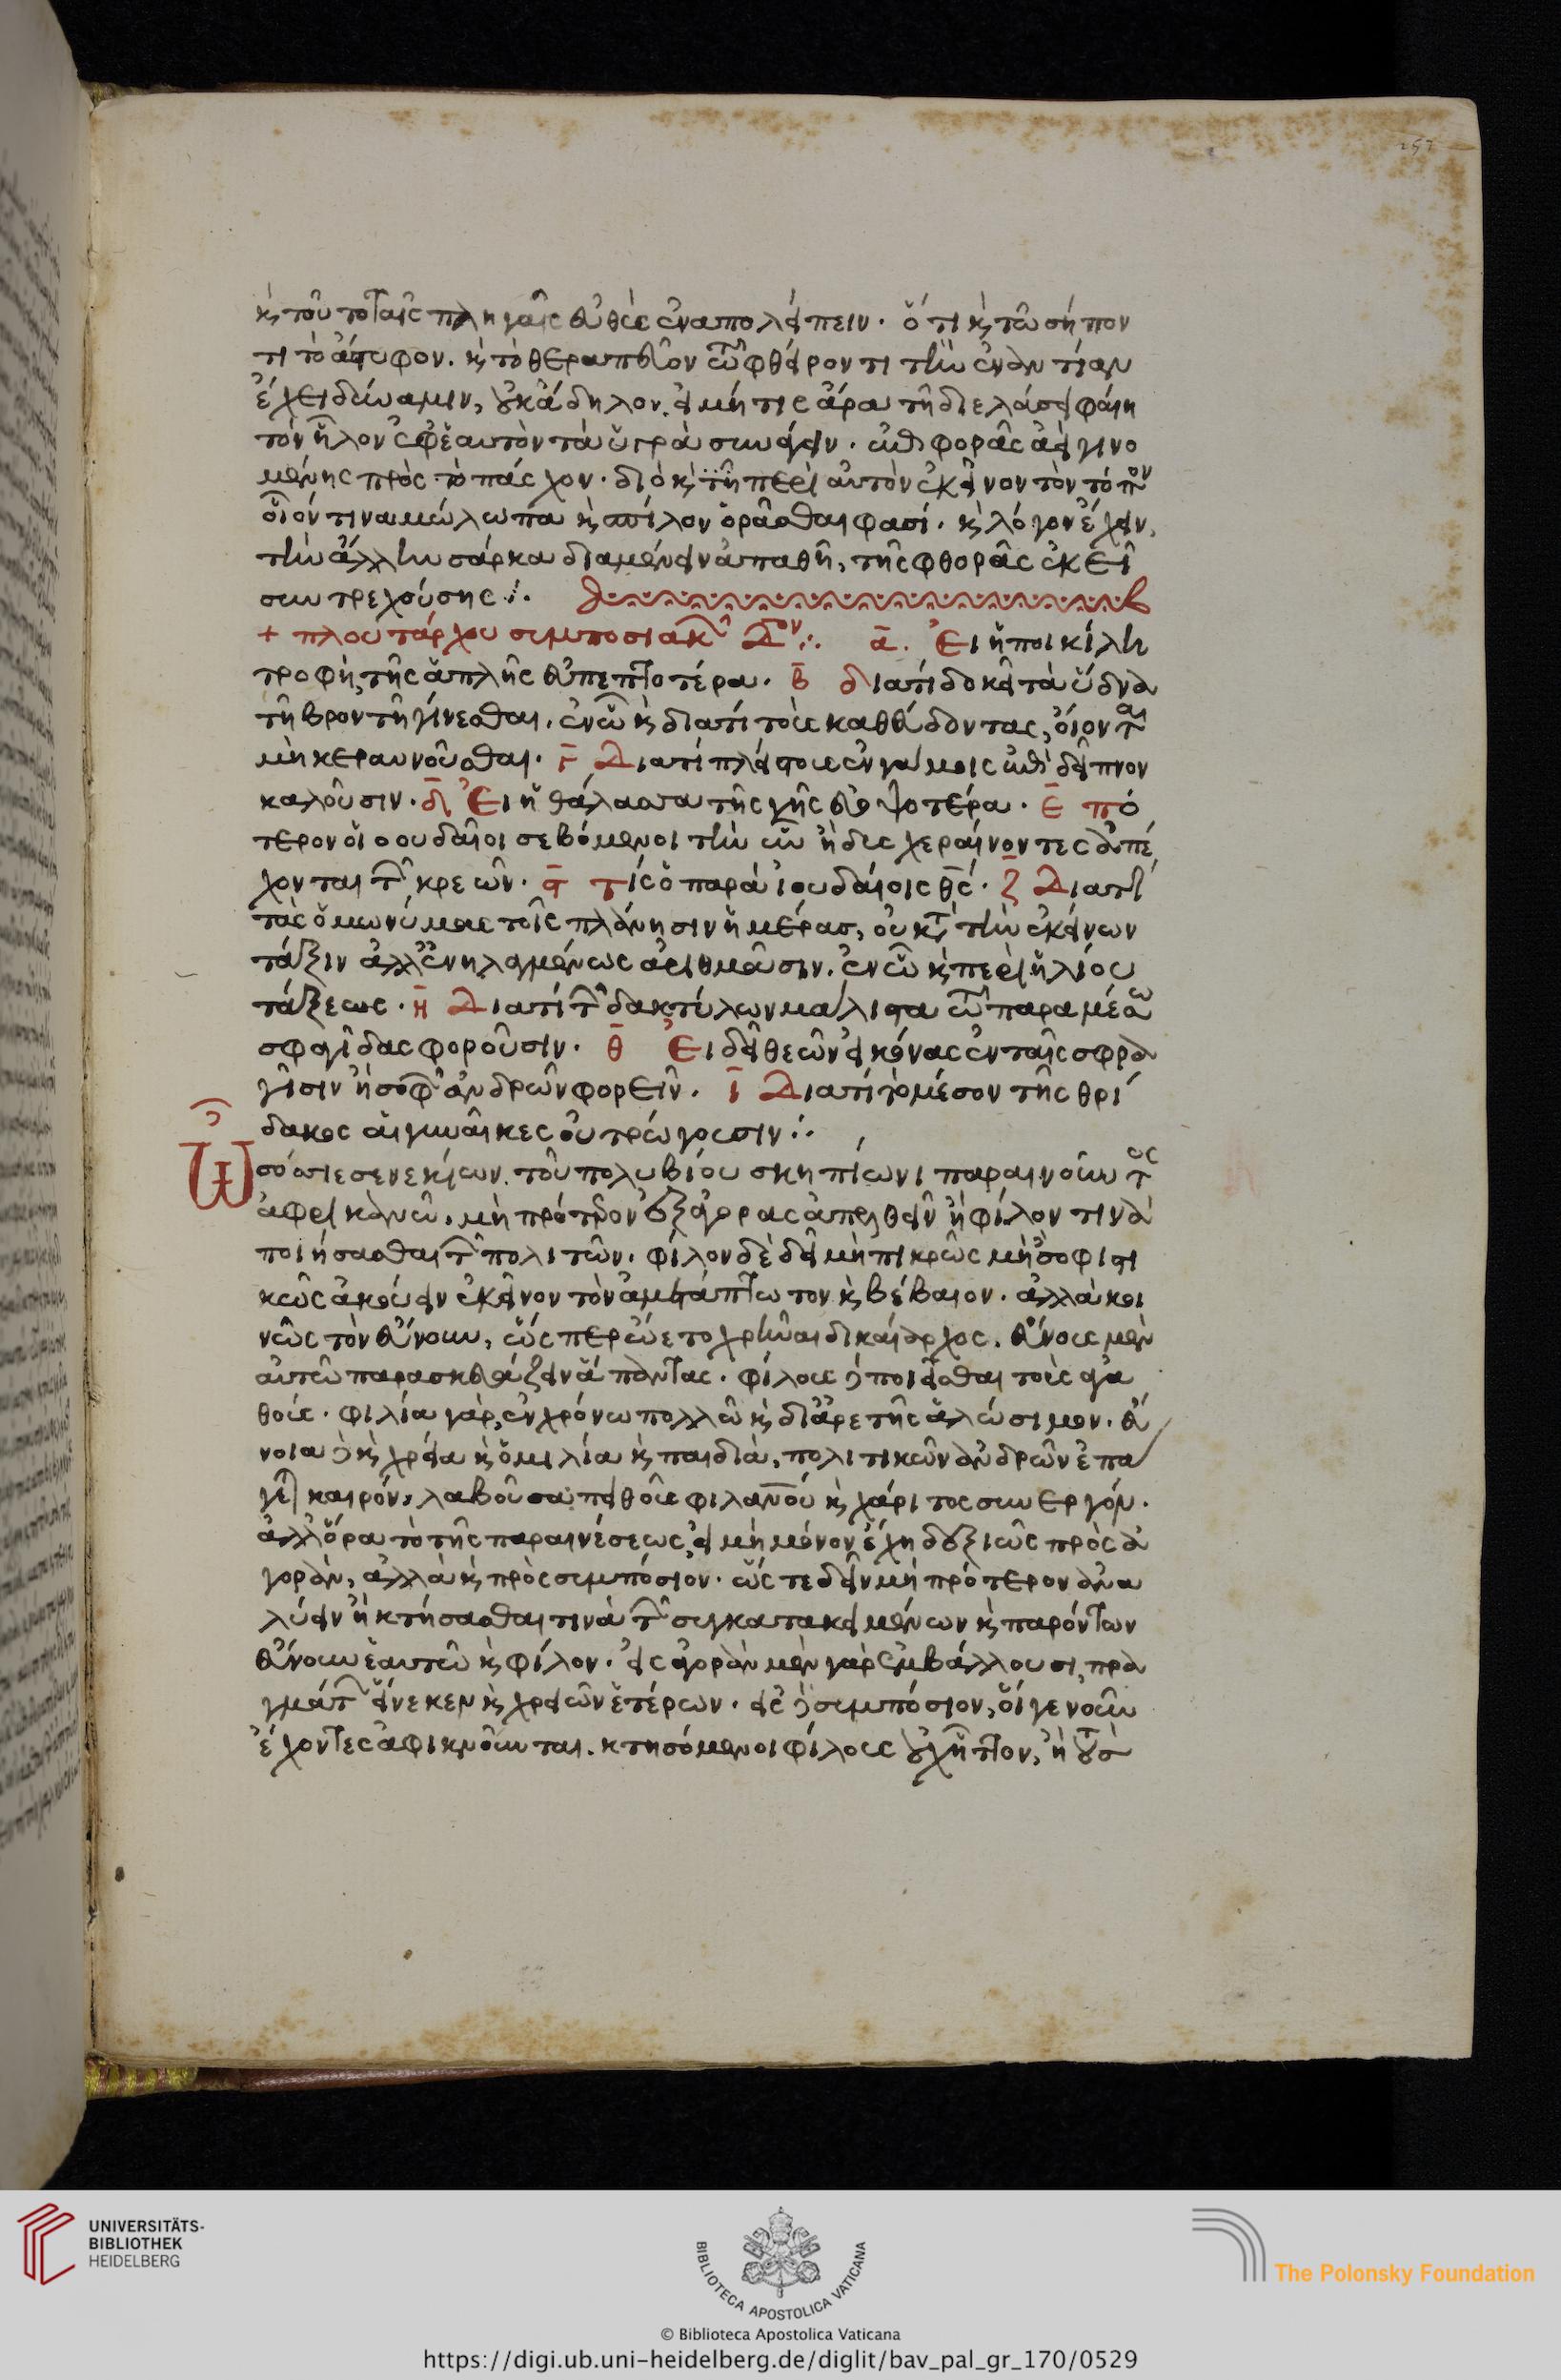 κ τοῦτο ταῖς πληγαῖς εὐθὺς ἐναπολείπειν. ὅτι κ τῶ σήπον
τι τὸ στῦφον. κ τὸ θεραπεῦον τῶ φθείροντι τὴν ἐναντίαν
ἔχει δύναμιν, οὐκ ἄδηλον. εἰ μή τις ἄρα τῆ διελάσει φαίη
τὸν ἧλον ἐφ ἑαυτὸν τὰ ὑγρὰ συνάγειν. ἐπιφορᾶς ἀεὶ γινο
μένης πρὸς τὸ πάσχον. διὸ κ τῆ περὶ αὐτὸν ἐκεῖνον τὸν τόπον
οἷόν τινα μώλωπα κ σπίλον ὁρᾶσθαι φασί. κ λόγον ἔχειν,
τὴν ἄλλην σάρκα διαμένειν ἀπαθῆ, τῆς φθορᾶς ἐκεῖ
συντρεχούσης:.
+ πλουτάρχου συμποσιακῶν Δον:. α. Ει ἡ ποικίλη
τροφὴ, τῆς ἁπλῆς εὐπεπτοτέρα. β διατί δοκεῖ τὰ ὕδνα
τῆ βροντῆ γίνεσθαι. ἐν ὧ κ διατί τοὺς καθεύδοντας, οἴονται
μὴ κεραυνοῦσθαι. γ Διατί πλείστους ἐν γάμοις ἐπὶ δεῖπνον
καλοῦσιν. δ Ει ἡ θάλασσα τῆς γῆς εὐοψοτέρα. ε πό
τερον οἱ ουδαῖοι σεβόμενοι τὴν ὗν ἢ δυσχεραίνοντες ἀπέ
χονται τῶν κρεῶν. ϛ τίς ὁ παρὰ ἰουδαίοις θς. ζ Διατί
τὰς ὁμωνύμους τοῖς πλάνησιν ἡμέρας, οὐ κατὰ τὴν ἐκείνων
τάξιν ἀλλ ἐνηλαγμένως ἀριθμοῦσιν. ἐν ὧ κ περὶ ἡλίου
τάξεως. η Διατί τῶν δακτύλων μάλιστα τῶ παραμέσω
σφραγῖδας φοροῦσιν. θ Ει δεῖ θεῶν εἰκόνας ἐν ταῖς σφρα
γῖσιν ἢ σοφῶν ἀνδρῶν φορεῖν. ι Διατί τὸ μέσον τῆς θρί
δακος αἱ γυναῖκες οὐ τρώγουσιν:.
Ὦ σόσσιε σενεκίων. τοῦ πολυβίου σκηπίωνι παραινοῦντος
ἀφρικανῶ. μὴ πρότερον ἐξ ἀγορᾶς ἀπελθεῖν ἢ φίλον τινὰ
ποιήσασθαι τῶν πολιτῶν. φίλον δὲ δεῖ μὴ πικρῶς μὴ σοφιστι
κῶς ἀκούειν ἐκεῖνον τὸν ἀμετάπτωτον κ βέβαιον. ἀλλὰ κοι
νῶς τὸν εὔνουν, ὥσπερ ὤετο χρῆναι δικαίαρχος. εὔνους μὲν
αὑτῶ παρασκευάζειν ἅπαντας. φίλους δὲ ποιεῖσθαι τοὺς ἀγα
θούς. φιλία γὰρ, ἐν χρόνω πολλῶ κ δι ἀρετῆς ἁλώσιμον. εὔ
νοια δὲ κ χρεία κ ὁμιλία κ παιδιὰ, πολιτικῶν ἀνδρῶν ἐπά
γεται καιρὸν, λαβοῦσα πειθοῦς φιλανου κ χάριτος συνεργόν.
ἀλλ ὅρα τὸ τῆς παραινέσεως, εἰ μὴ μόνον ἔχη δεξιῶς πρὸς ἀ
γορὰν, ἀλλὰ κ πρὸς συμπόσιον. ὥστε δεῖν μὴ πρότερον ἀνα
λύειν ἢ κτήσασθαι τινὰ τῶν συγκατακειμένων κ παρόντων
εὔνουν ἑαυτῶ κ φίλον. εἰς ἀγορὰν μὲν γὰρ ἐμβάλλουσι, πρα
γμάτων εἵνεκεν κ χρειῶν ἑτέρων. εἰς δὲ συμπόσιον, οἵ γε νοῦν
ἔχοντες ἀφικνοῦνται. κτησόμενοι φίλους οὐχ ἧττον, ἢ τοὺς
UNIVERSITÄTS-
BIBLIOTHEK
HEIDELBERG
BIBLIOTECA APOSTOLICA VATICANA
The Polonsky Foundation
© Biblioteca Apostolica Vaticana
https://digi.ub.uni-heidelberg.de/diglit/bav_pal_gr_170/0529